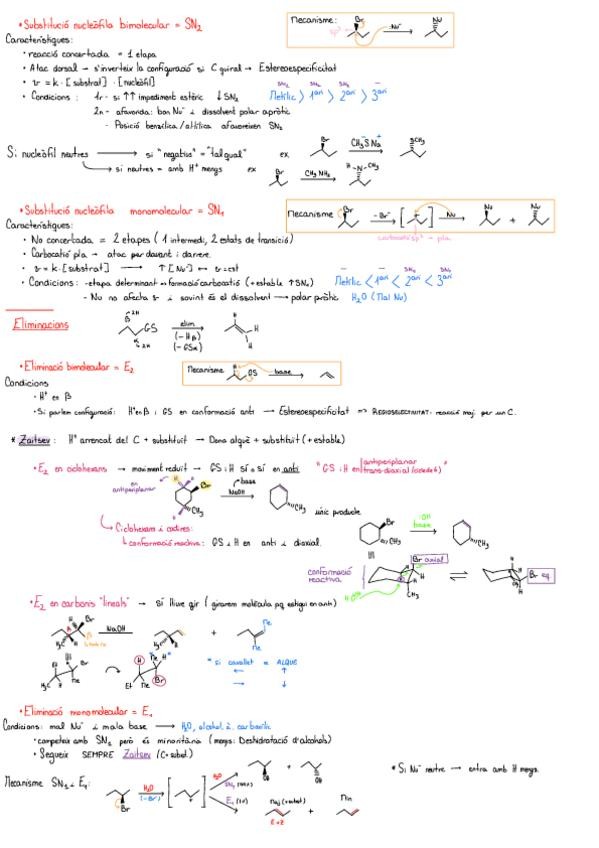 • Substitució nucleòfila bimolecular = SN2
Mecanisme: Br :Nu⁻ Nu
sp³
Característiques:
• reacció concertada = 1 etapa
• Atac dorsal → s'inverteix la configuració si C quiral → Estereoespecificitat
• v = k · [substrat] · [nucleòfil]
• Condicions: 1r - si ↑↑ impediment estèric ↓SN2 Metílic > 1ari > 2ari > 3ari
SN2 SN2 SN2
2n - afavorida: bon Nu⁻ i dissolvent polar apròtic
- Posició benzílica/al·lílica afavoreixen SN2
Si nucleòfil neutres → si "negatius" = "tal qual" ex Br CH3S Na SCH3
→ si neutres = amb H⁺ menys ex Br CH3NH2 H-N-CH3
• Substitució nucleòfila monomolecular = SN1
Mecanisme Br -Br⁻ [ + ] Nu Nu + Nu
carbocatió sp² → pla
Característiques:
• No concertada = 2 etapes (1 intermedi, 2 estats de transició)
• Carbocatió pla → atac per davant i darrere.
• v = k · [substrat] → ↑[Nu⁻] ↔ v = cst
• Condicions: - etapa determinant = formació carbocatió (+ estable ↑SN1) Metílic < 1ari < 2ari < 3ari
SN1 SN1
- Nu no afecta v i sovint és el dissolvent → polar pròtic H2O (Mal Nu)
Eliminacions
β 2H GS elim H
α 2H (-Hβ) H
(-GSα) H
• Eliminació bimolecular = E2
Mecanisme H GS base
Condicions
• H⁺ en β
• Si parlem configuració: H en β i GS en conformació anti → Estereoespecificitat => REGIOSELECTIVITAT: reacció maj. per un C.
* Zaitsev: H⁺ arrencat del C + substituït → Dona alquè + substituït (+ estable)
• E2 en ciclohexans → moviment reduït → GS i H sí o sí en anti "GS i H en antiperiplanar
trans-diaxial
en antiperiplanar H Br base
NaOH
CH3 CH3 únic producte
Br :OH base
CH3 CH3
↳ Ciclohexam i cadires:
↳ conformació reactiva: GS i H en anti i diaxial.
conformació reactiva Br axial
H H
HO⁻ CH3
H Br eq
• E2 en carbonis "lineals" → sí lliure gir (girarem molècula pq estigui en anti)
H Br NaOH + Me
H3C β Me
H Br H Me H
H3C Me Et Me Br
* si cavallet = ALQUE
← ↑
→ ↓
• Eliminació monomolecular = E1
Condicions: mal Nu⁻ i mala base → H2O, alcohol, à. carboxílic
• competeix amb SN1 però és minoritària (menys: Deshidratació d'alcohols)
• Segueix SEMPRE Zaitsev (C + subst.)
* Si Nu⁻ neutre → entra amb H menys.
Mecanisme SN1 i E1: H2O (-Br⁻) [ + ] H2O SN1 OH + OH
Br E1 Maj (+ subst) Min
E + Z +